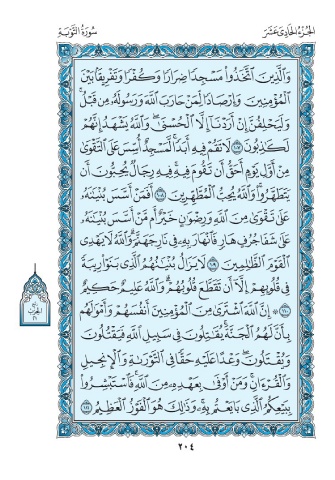 الجزء الحادي عشر
سورة التوبة
وَٱلَّذِينَ ٱتَّخَذُوا۟ مَسْجِدًا ضِرَارًا وَكُفْرًا وَتَفْرِيقًۢا بَيْنَ
ٱلْمُؤْمِنِينَ وَإِرْصَادًا لِّمَنْ حَارَبَ ٱللَّهَ وَرَسُولَهُۥ مِن قَبْلُ ۚ
وَلَيَحْلِفُنَّ إِنْ أَرَدْنَآ إِلَّا ٱلْحُسْنَىٰ ۖ وَٱللَّهُ يَشْهَدُ إِنَّهُمْ
لَكَـٰذِبُونَ ١٠٧ لَا تَقُمْ فِيهِ أَبَدًا ۚ لَّمَسْجِدٌ أُسِّسَ عَلَى ٱلتَّقْوَىٰ
مِنْ أَوَّلِ يَوْمٍ أَحَقُّ أَن تَقُومَ فِيهِ ۚ فِيهِ رِجَالٌ يُحِبُّونَ أَن
يَتَطَهَّرُوا۟ ۚ وَٱللَّهُ يُحِبُّ ٱلْمُطَّهِّرِينَ ١٠٨ أَفَمَنْ أَسَّسَ بُنْيَـٰنَهُۥ
عَلَىٰ تَقْوَىٰ مِنَ ٱللَّهِ وَرِضْوَٰنٍ خَيْرٌ أَم مَّنْ أَسَّسَ بُنْيَـٰنَهُۥ
عَلَىٰ شَفَا جُرُفٍ هَارٍ فَٱنْهَارَ بِهِۦ فِى نَارِ جَهَنَّمَ ۗ وَٱللَّهُ لَا يَهْدِى
ٱلْقَوْمَ ٱلظَّـٰلِمِينَ ١٠٩ لَا يَزَالُ بُنْيَـٰنُهُمُ ٱلَّذِى بَنَوْا۟ رِيبَةً
فِى قُلُوبِهِمْ إِلَّآ أَن تَقَطَّعَ قُلُوبُهُمْ ۗ وَٱللَّهُ عَلِيمٌ حَكِيمٌ
١١٠ ۞ إِنَّ ٱللَّهَ ٱشْتَرَىٰ مِنَ ٱلْمُؤْمِنِينَ أَنفُسَهُمْ وَأَمْوَٰلَهُم
بِأَنَّ لَهُمُ ٱلْجَنَّةَ ۚ يُقَـٰتِلُونَ فِى سَبِيلِ ٱللَّهِ فَيَقْتُلُونَ
وَيُقْتَلُونَ ۖ وَعْدًا عَلَيْهِ حَقًّا فِى ٱلتَّوْرَىٰةِ وَٱلْإِنجِيلِ
وَٱلْقُرْءَانِ ۚ وَمَنْ أَوْفَىٰ بِعَهْدِهِۦ مِنَ ٱللَّهِ ۚ فَٱسْتَبْشِرُوا۟
بِبَيْعِكُمُ ٱلَّذِى بَايَعْتُم بِهِۦ ۚ وَذَٰلِكَ هُوَ ٱلْفَوْزُ ٱلْعَظِيمُ ١١١
٢٠٤